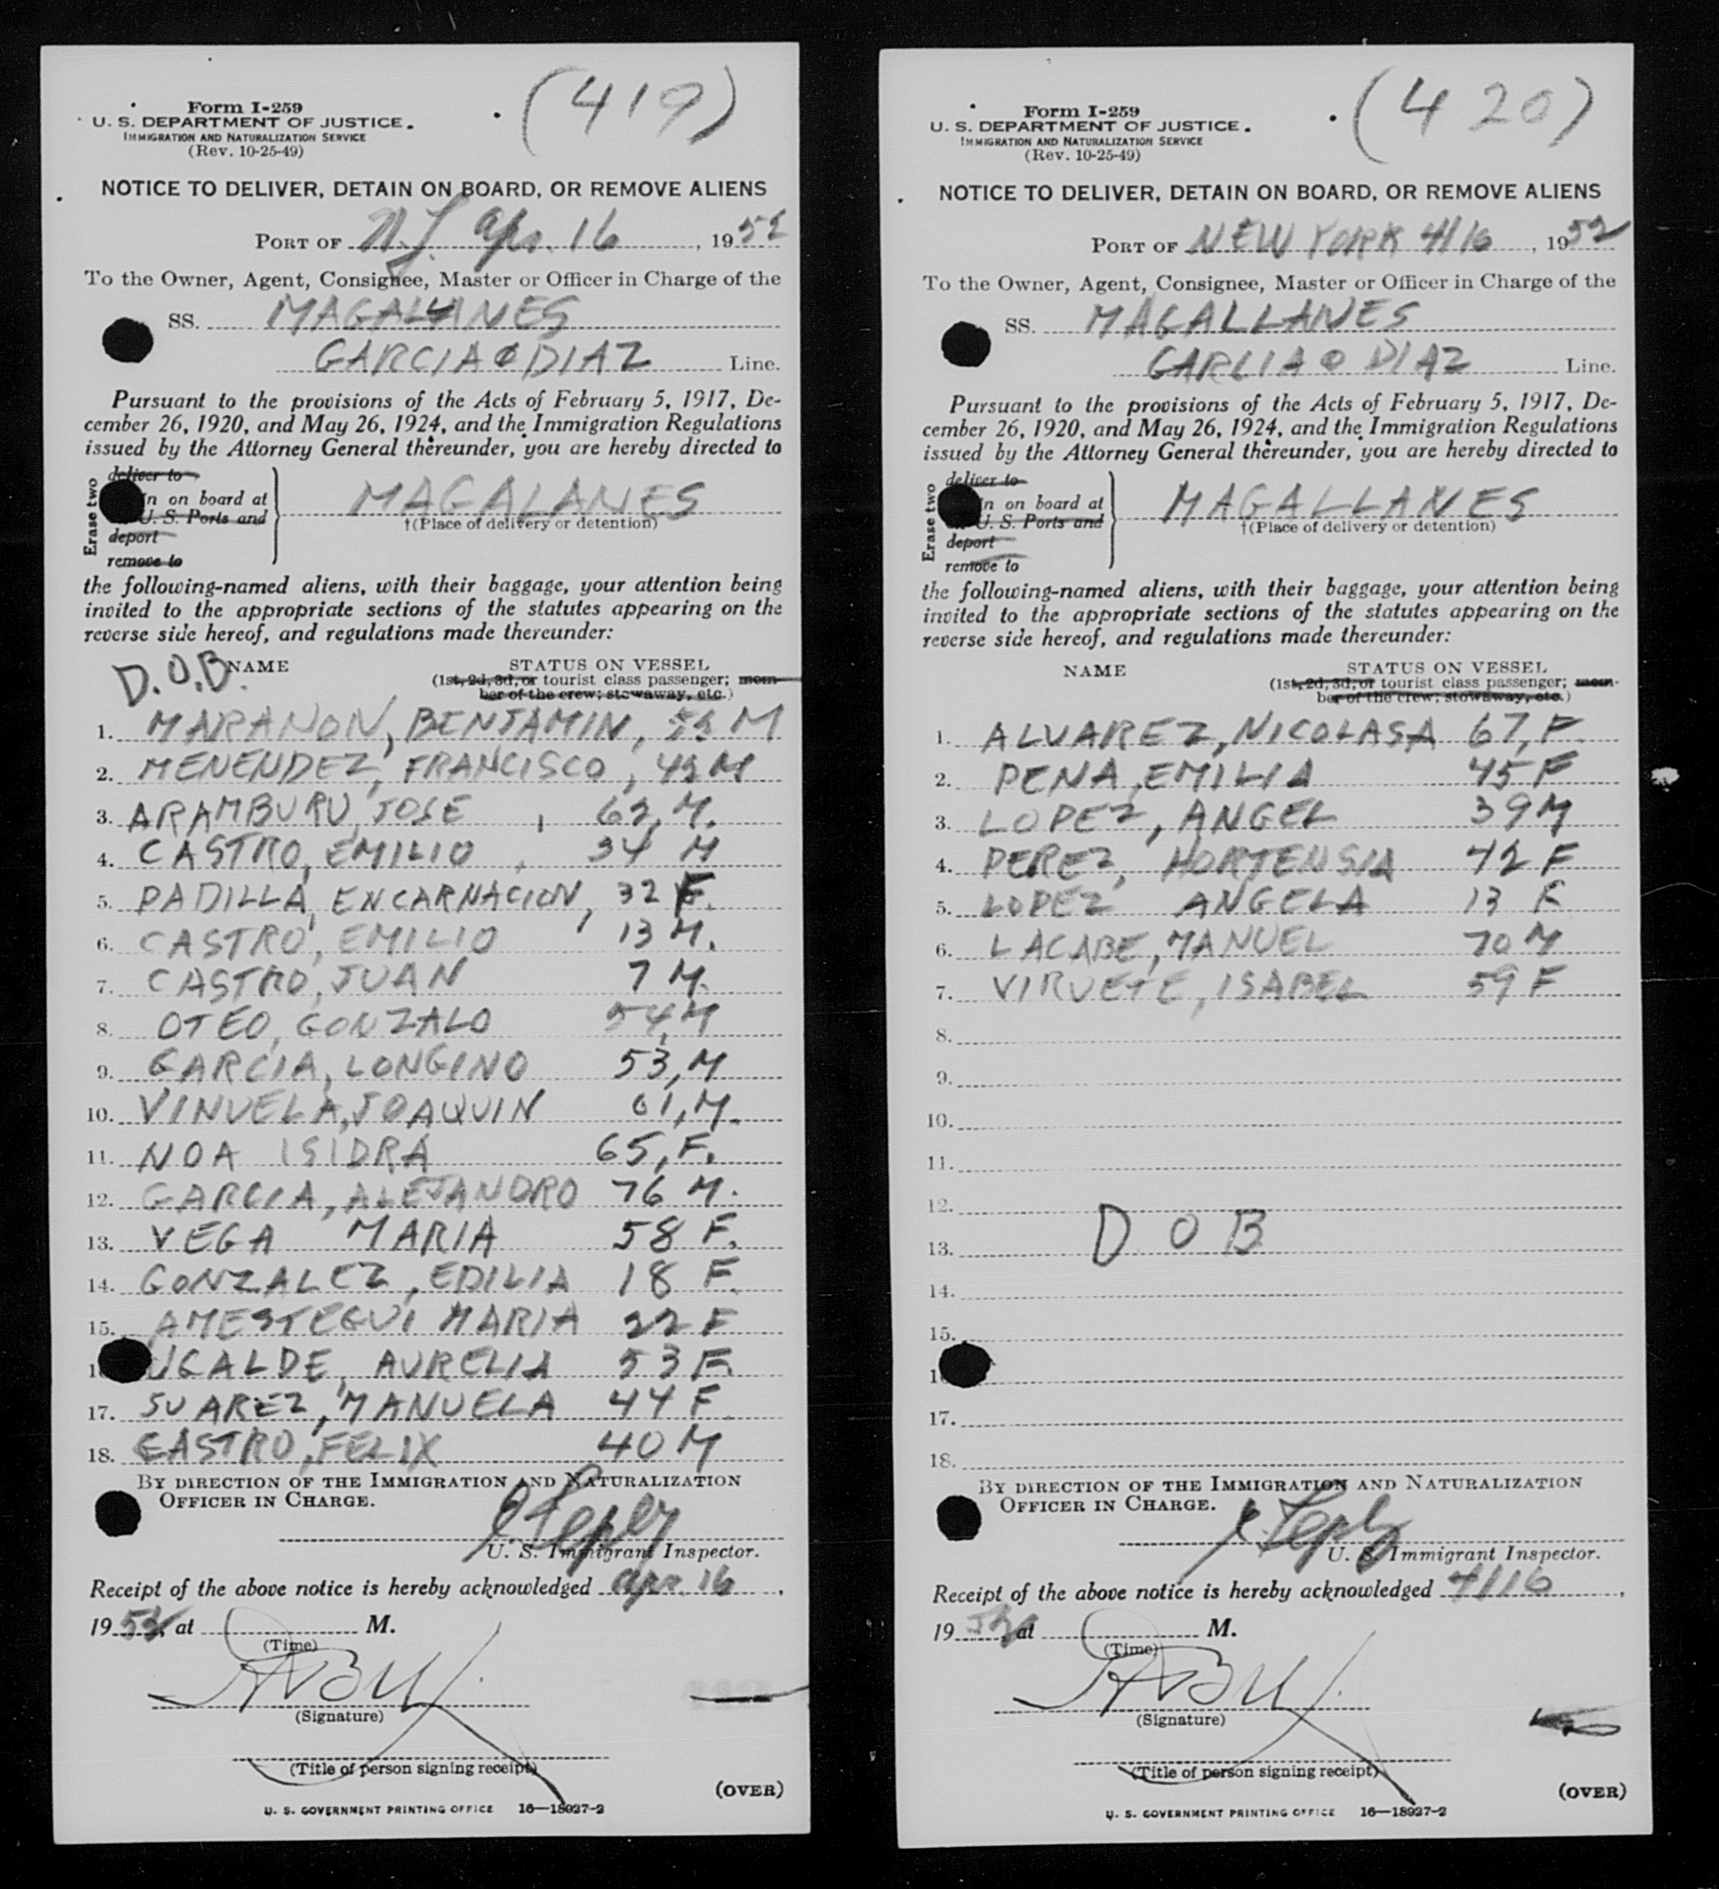 (419)
Form I-259
U. S. DEPARTMENT OF JUSTICE.
IMMIGRATION AND NATURALIZATION SERVICE
(Rev. 10-25-49)
NOTICE TO DELIVER, DETAIN ON BOARD, OR REMOVE ALIENS
PORT OF N.Y. Apr. 16, 1952
To the Owner, Agent, Consignee, Master or Officer in Charge of the
SS. MAGALLANES
GARCIA & DIAZ Line.
Pursuant to the provisions of the Acts of February 5, 1917, De-
cember 26, 1920, and May 26, 1924, and the Immigration Regulations
issued by the Attorney General thereunder, you are hereby directed to
Erase two
deliver to
in on board at
U. S. Ports and
deport
remove to
MAGALANES
†(Place of delivery or detention)
the following-named aliens, with their baggage, your attention being
invited to the appropriate sections of the statutes appearing on the
reverse side hereof, and regulations made thereunder:
D.O.B. NAME STATUS ON VESSEL
(1st, 2d, 3d, or tourist class passenger; mem-
ber of the crew; stowaway, etc.)
1. MARANON, BENJAMIN, M
2. MENENDEZ, FRANCISCO, M
3. ARAMBURU, JOSE, 62, M.
4. CASTRO, EMILIO, 34 M
5. PADILLA, ENCARNACION, 32 F.
6. CASTRO, EMILIO, 13 M.
7. CASTRO, JUAN 7 M.
8. OTEO, GONZALO 54, M
9. GARCIA, LONGINO 53, M
10. VINUELA, JOAQUIN 61, M.
11. NOA ISIDRA 65, F.
12. GARCIA, ALEJANDRO 76 M.
13. VEGA MARIA 58 F.
14. GONZALEZ, EDILIA 18 F.
15. AMESTEGUI MARIA 22 F
UGALDE, AURELIA 53 F.
17. SUAREZ, MANUELA 44 F.
18. CASTRO, FELIX 40 M
BY DIRECTION OF THE IMMIGRATION AND NATURALIZATION
OFFICER IN CHARGE.
U. S. Immigrant Inspector.
Receipt of the above notice is hereby acknowledged Apr. 16,
1952, at M.
(Time)
(Signature)
(Title of person signing receipt)
(OVER)
U. S. GOVERNMENT PRINTING OFFICE 16—18027-2
(420)
Form I-259
U. S. DEPARTMENT OF JUSTICE.
IMMIGRATION AND NATURALIZATION SERVICE
(Rev. 10-25-49)
NOTICE TO DELIVER, DETAIN ON BOARD, OR REMOVE ALIENS
PORT OF NEW YORK 4/16, 1952
To the Owner, Agent, Consignee, Master or Officer in Charge of the
SS. MAGALLANES
GARCIA & DIAZ Line.
Pursuant to the provisions of the Acts of February 5, 1917, De-
cember 26, 1920, and May 26, 1924, and the Immigration Regulations
issued by the Attorney General thereunder, you are hereby directed to
Erase two
deliver to
in on board at
U. S. Ports and
deport
remove to
MAGALLANES
†(Place of delivery or detention)
the following-named aliens, with their baggage, your attention being
invited to the appropriate sections of the statutes appearing on the
reverse side hereof, and regulations made thereunder:
NAME STATUS ON VESSEL
(1st, 2d, 3d, or tourist class passenger; mem-
ber of the crew; stowaway, etc.)
1. ALVAREZ, NICOLASA 67, F.
2. PENA, EMILIA 45 F
3. LOPEZ, ANGEL 39 M
4. PEREZ, HORTENSIA 42 F
5. LOPEZ ANGELA 13 F
6. LACABE, MANUEL 70 M
7. VIRUETE, ISABEL 59 F
8.
9.
10.
11.
12.
13. D O B
14.
15.
17.
18.
BY DIRECTION OF THE IMMIGRATION AND NATURALIZATION
OFFICER IN CHARGE.
U. S. Immigrant Inspector.
Receipt of the above notice is hereby acknowledged 4/16,
1952, at M.
(Time)
(Signature)
(Title of person signing receipt)
(OVER)
U. S. GOVERNMENT PRINTING OFFICE 16—18027-2